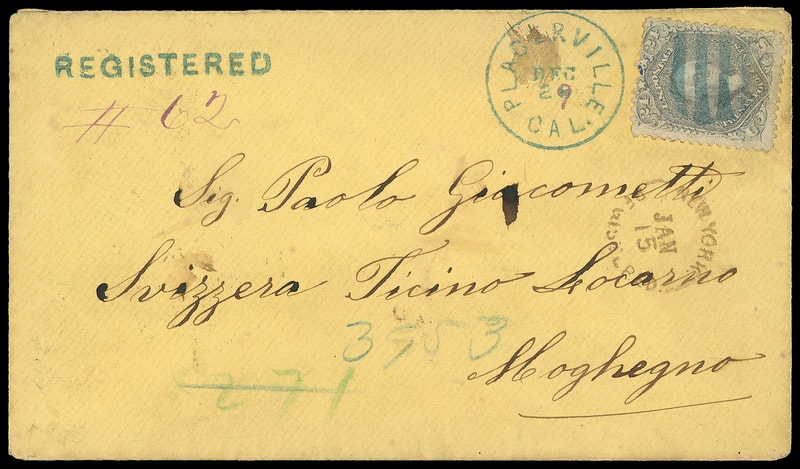 REGISTERED
# 62
PLACERVILLE
DEC
29
CAL.
Sig. Paolo Giacometti
NEW YORK
JAN
15
Svizzera Ticino Locarno
3553
Moghegno
271